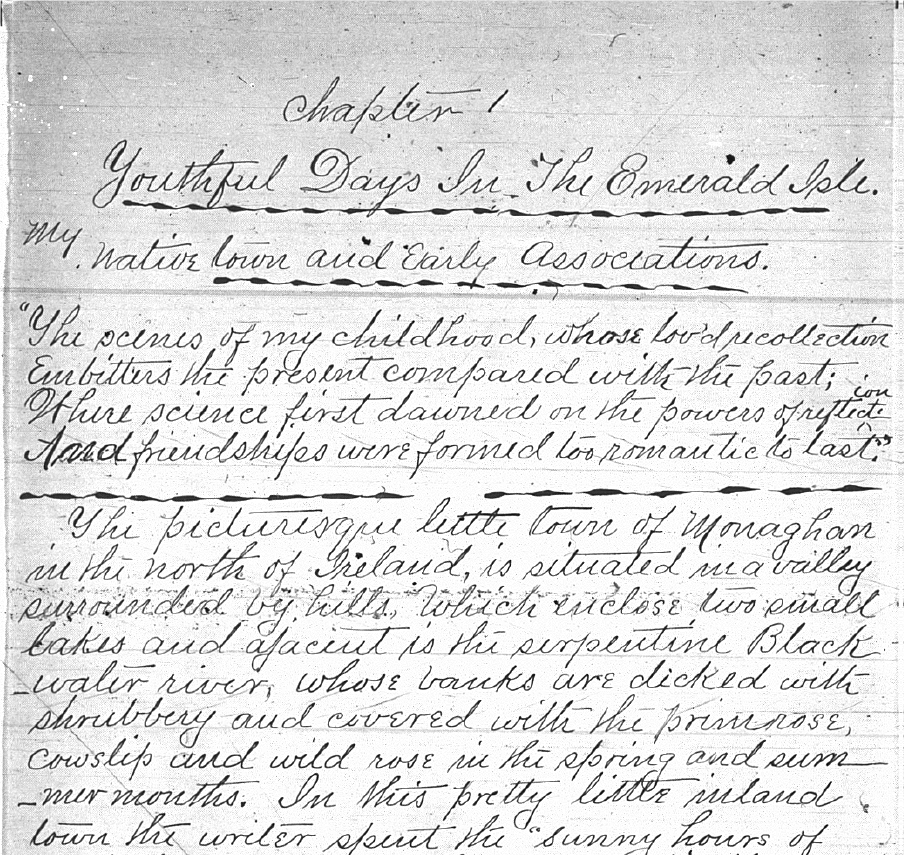 Chapter 1
Youthful Days In The Emerald Isle.
My native town and Early Associations.
"The scenes of my childhood, whose lov'd recollection
Embitters the present compared with the past;
Where science first dawned on the powers of reflection
And friendships were formed too romantic to last."
The picturesque little town of Monaghan
in the north of Ireland, is situated in a valley
surrounded by hills, which enclose two small
lakes and ajacent is the serpentine Black
-water river, whose banks are dicked with
shrubbery and covered with the primrose,
cowslip and wild rose in the spring and sum-
-mer months. In this pretty little inland
town the writer spent the "sunny hours of